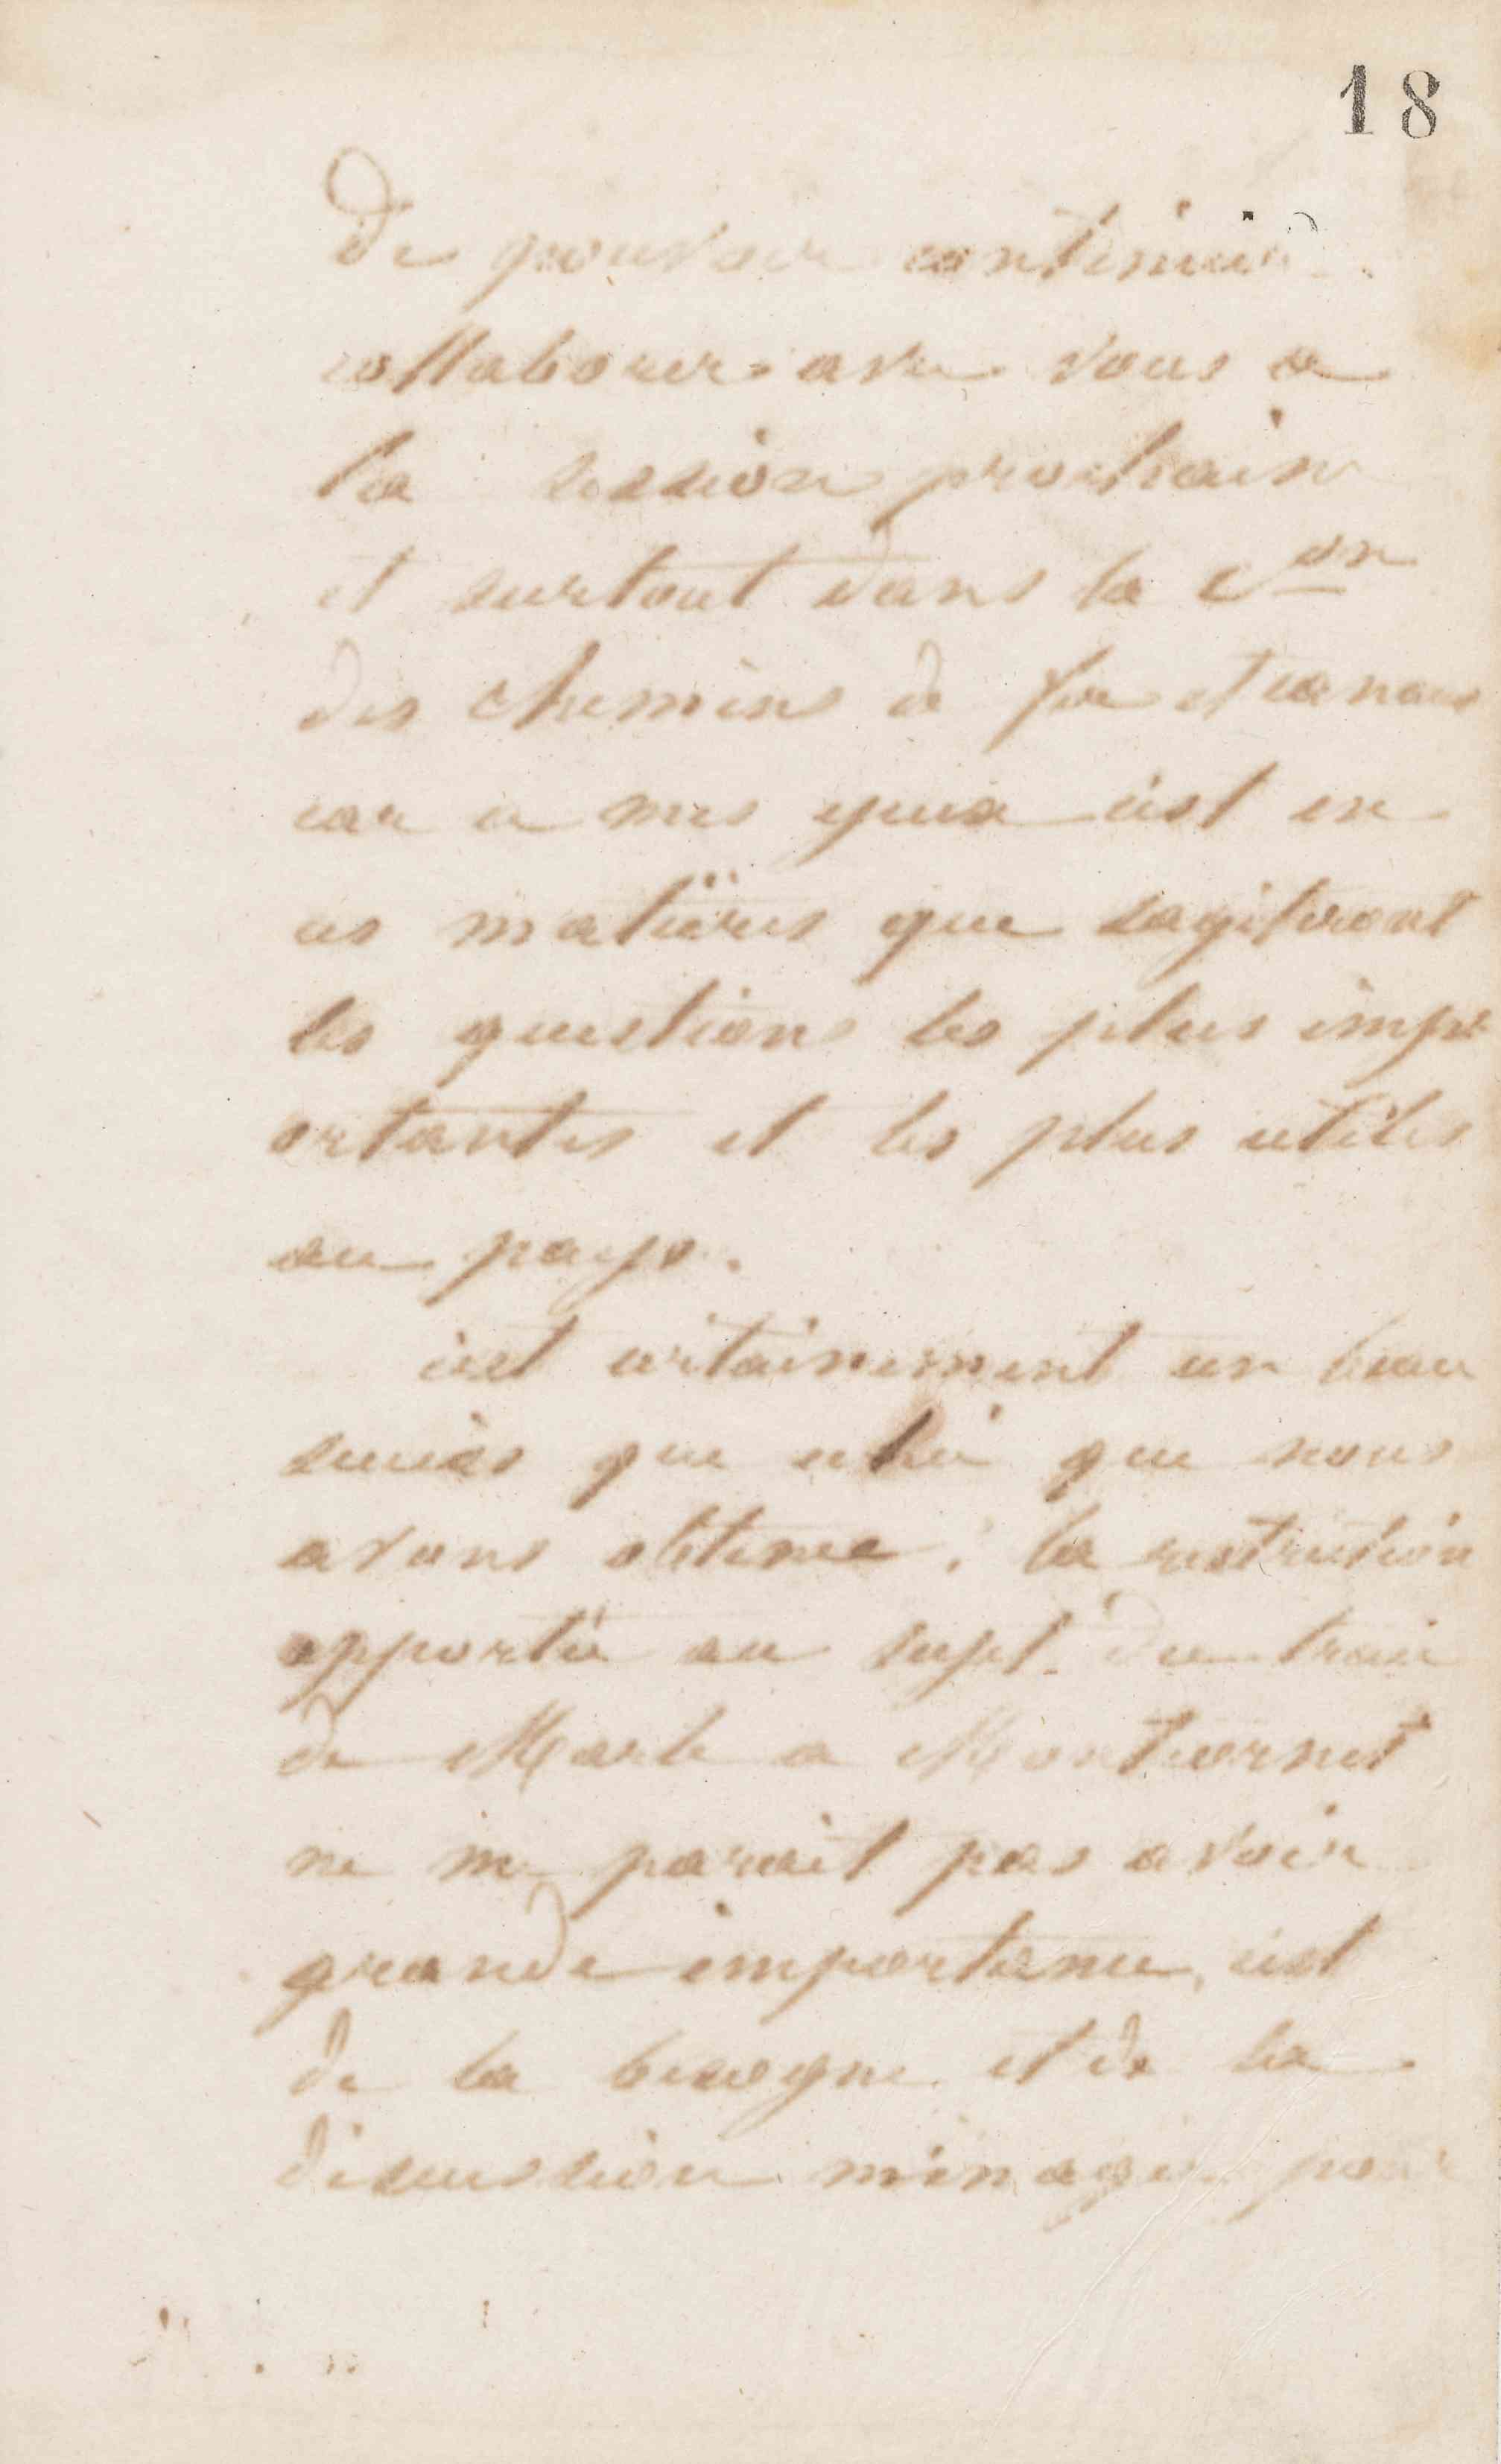 18
De pouvoir continuer
collaborer avec vous a
la session prochaine
et surtout dans la Con
des chemins de fer et canaux
car a mes yeux c'est en
ces matières que sagiteront
les questions les plus imp
ortantes et les plus utiles
au pays.
c'est certainement un beau
succès que celui que nous
avons obtenu. la restriction
apportée au sujet du tracé
de Marle a Montcornet
ne me parait pas avoir
grande importance, c'est
de la besogne et de la
discussion ménagée pour